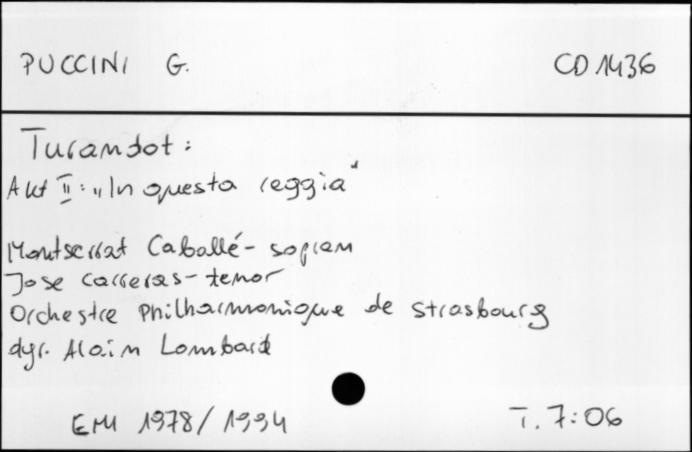 PUCCINI G. CD 1436
Turandot:
Akt II: „In questa reggia"
Montserrat Caballé - sopran
Jose Carreras - tenor
Orchestre Philharmonique de Strasbourg
dyr. Alain Lombard
EMI 1978/1994 T. 7:06